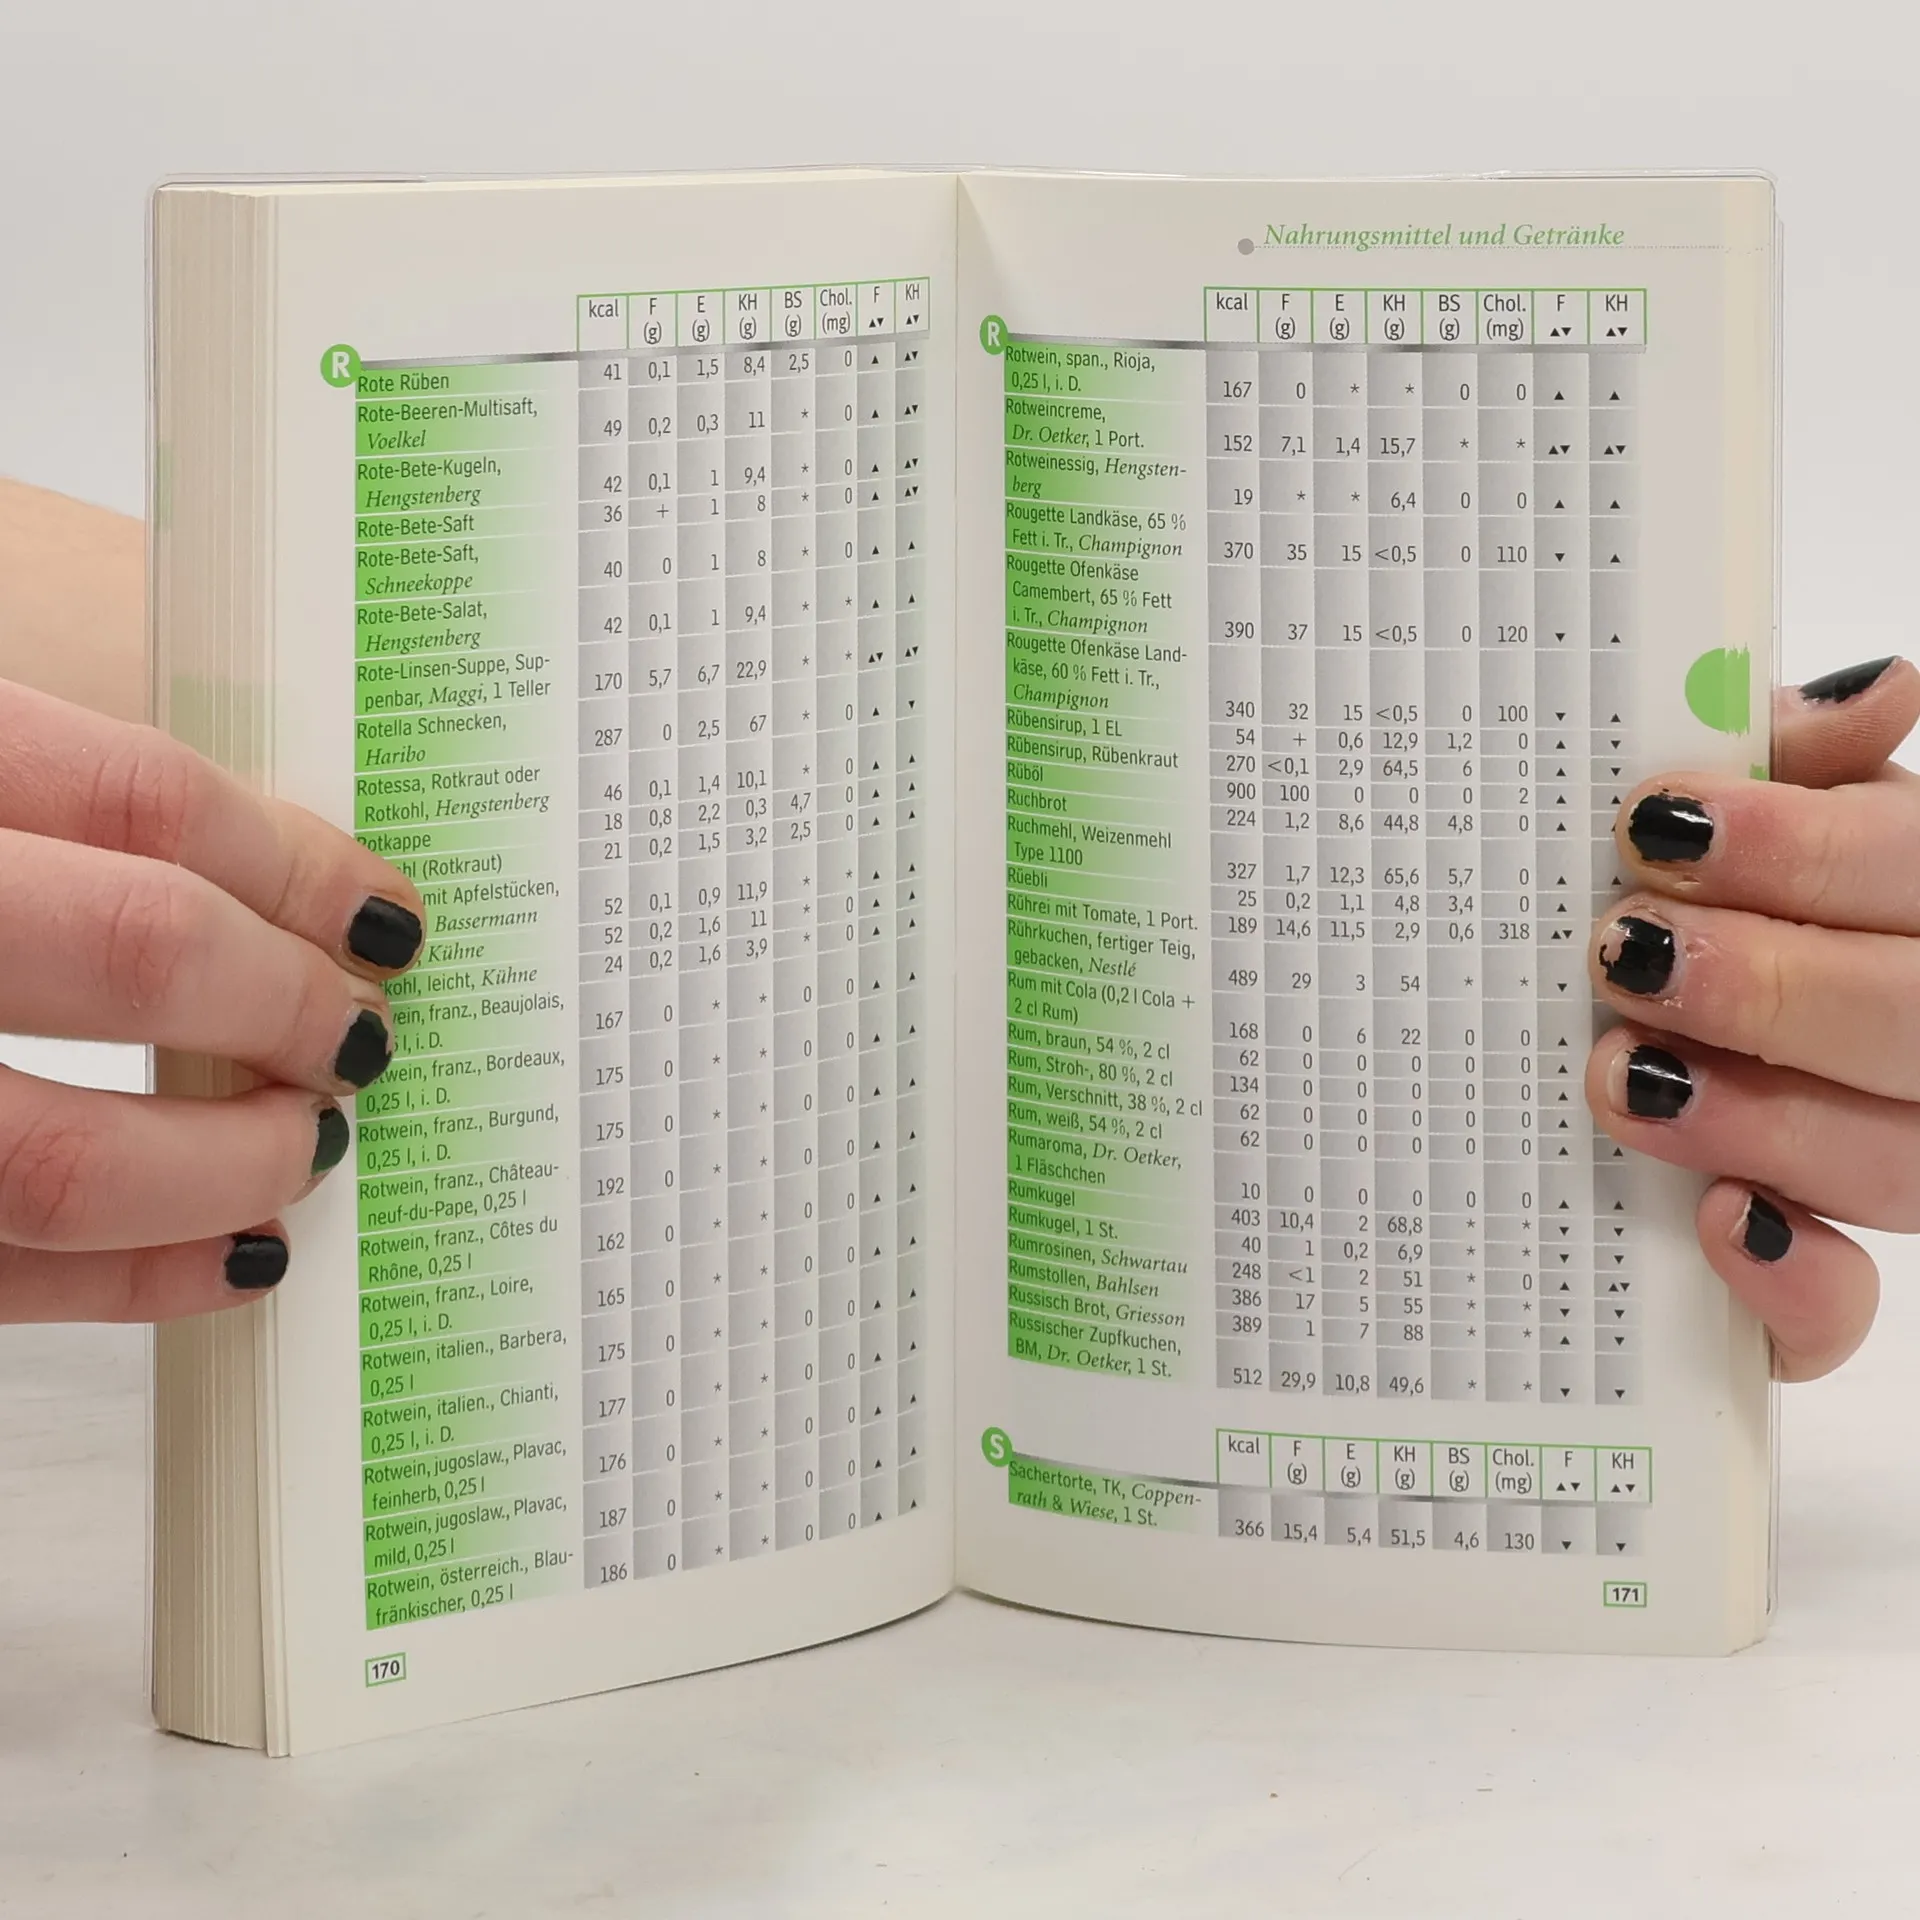 kcal F E KH BS Chol. F KH
(g) (g) (g) (g) (mg) ▲▼ ▲▼
R
Rote Rüben 41 0,1 1,5 8,4 2,5 0 ▲ ▲▼
Rote-Beeren-Multisaft,
Voelkel 49 0,2 0,3 11 * 0 ▲ ▲▼
Rote-Bete-Kugeln,
Hengstenberg 42 0,1 1 9,4 * 0 ▲ ▲▼
Rote-Bete-Saft 36 + 1 8 * 0 ▲ ▲▼
Rote-Bete-Saft,
Schneekoppe 40 0 1 8 * 0 ▲ ▲
Rote-Bete-Salat,
Hengstenberg 42 0,1 1 9,4 * * ▲ ▲
Rote-Linsen-Suppe, Sup-
penbar, Maggi, 1 Teller 170 5,7 6,7 22,9 * * ▲▼ ▲▼
Rotella Schnecken,
Haribo 287 0 2,5 67 * 0 ▲ ▼
Rotessa, Rotkraut oder
Rotkohl, Hengstenberg 46 0,1 1,4 10,1 * 0 ▲ ▲
Rotkappe 18 0,8 2,2 0,3 4,7 0 ▲ ▲
(Rotkraut) 21 0,2 1,5 3,2 2,5 0 ▲ ▲
mit Apfelstücken,
Bassermann 52 0,1 0,9 11,9 * * ▲ ▲
Kühne 52 0,2 1,6 11 * 0 ▲ ▲
leicht, Kühne 24 0,2 1,6 3,9 * 0 ▲ ▲
franz., Beaujolais,
l, i. D. 167 0 * * 0 0 ▲ ▲
franz., Bordeaux,
0,25 l, i. D. 175 0 * * 0 0 ▲ ▲
Rotwein, franz., Burgund,
0,25 l, i. D. 175 0 * * 0 0 ▲ ▲
Rotwein, franz., Château-
neuf-du-Pape, 0,25 l 192 0 * * 0 0 ▲ ▲
Rotwein, franz., Côtes du
Rhône, 0,25 l 162 0 * * 0 0 ▲ ▲
Rotwein, franz., Loire,
0,25 l, i. D. 165 0 * * 0 0 ▲ ▲
Rotwein, italien., Barbera,
0,25 l 175 0 * * 0 0 ▲ ▲
Rotwein, italien., Chianti,
0,25 l, i. D. 177 0 * * 0 0 ▲ ▲
Rotwein, jugoslaw., Plavac,
feinherb, 0,25 l 176 0 * * 0 0 ▲ ▲
Rotwein, jugoslaw., Plavac,
mild, 0,25 l 187 0 * * 0 0 ▲ ▲
Rotwein, österreich., Blau-
fränkischer, 0,25 l 186 0 * * 0 0 ▲ ▲
170
Nahrungsmittel und Getränke
kcal F E KH BS Chol. F KH
(g) (g) (g) (g) (mg) ▲▼ ▲▼
R
Rotwein, span., Rioja,
0,25 l, i. D. 167 0 * * 0 0 ▲ ▲
Rotweincreme,
Dr. Oetker, 1 Port. 152 7,1 1,4 15,7 * * ▲▼ ▲▼
Rotweinessig, Hengsten-
berg 19 * * 6,4 0 0 ▲ ▲
Rougette Landkäse, 65 %
Fett i. Tr., Champignon 370 35 15 <0,5 0 110 ▼ ▲
Rougette Ofenkäse
Camembert, 65 % Fett
i. Tr., Champignon 390 37 15 <0,5 0 120 ▼ ▲
Rougette Ofenkäse Land-
käse, 60 % Fett i. Tr.,
Champignon 340 32 15 <0,5 0 100 ▼ ▲
Rübensirup, 1 EL 54 + 0,6 12,9 1,2 0 ▲ ▼
Rübensirup, Rübenkraut 270 <0,1 2,9 64,5 6 0 ▲ ▼
Rüböl 900 100 0 0 0 2 ▲ ▲
Ruchbrot 224 1,2 8,6 44,8 4,8 0 ▲
Ruchmehl, Weizenmehl
Type 1100 327 1,7 12,3 65,6 5,7 0 ▲ ▲
Rüebli 25 0,2 1,1 4,8 3,4 0 ▲
Rührei mit Tomate, 1 Port. 189 14,6 11,5 2,9 0,6 318 ▲▼
Rührkuchen, fertiger Teig,
gebacken, Nestlé 489 29 3 54 * * ▼
Rum mit Cola (0,2 l Cola +
2 cl Rum) 168 0 6 22 0 0 ▲
Rum, braun, 54 %, 2 cl 62 0 0 0 0 0 ▲
Rum, Stroh-, 80 %, 2 cl 134 0 0 0 0 0 ▲
Rum, Verschnitt, 38 %, 2 cl 62 0 0 0 0 0 ▲
Rum, weiß, 54 %, 2 cl 62 0 0 0 0 0 ▲ ▲
Rumaroma, Dr. Oetker,
1 Fläschchen 10 0 0 0 0 0 ▲ ▲
Rumkugel 403 10,4 2 68,8 * * ▼ ▼
Rumkugel, 1 St. 40 1 0,2 6,9 * * ▼ ▼
Rumrosinen, Schwartau 248 <1 2 51 * 0 ▲ ▲▼
Rumstollen, Bahlsen 386 17 5 55 * * ▼ ▼
Russisch Brot, Griesson 389 1 7 88 * * ▲ ▼
Russischer Zupfkuchen,
BM, Dr. Oetker, 1 St. 512 29,9 10,8 49,6 * * ▼ ▼
kcal F E KH BS Chol. F KH
(g) (g) (g) (g) (mg) ▲▼ ▲▼
S
Sachertorte, TK, Coppen-
rath & Wiese, 1 St. 366 15,4 5,4 51,5 4,6 130 ▼ ▼
171